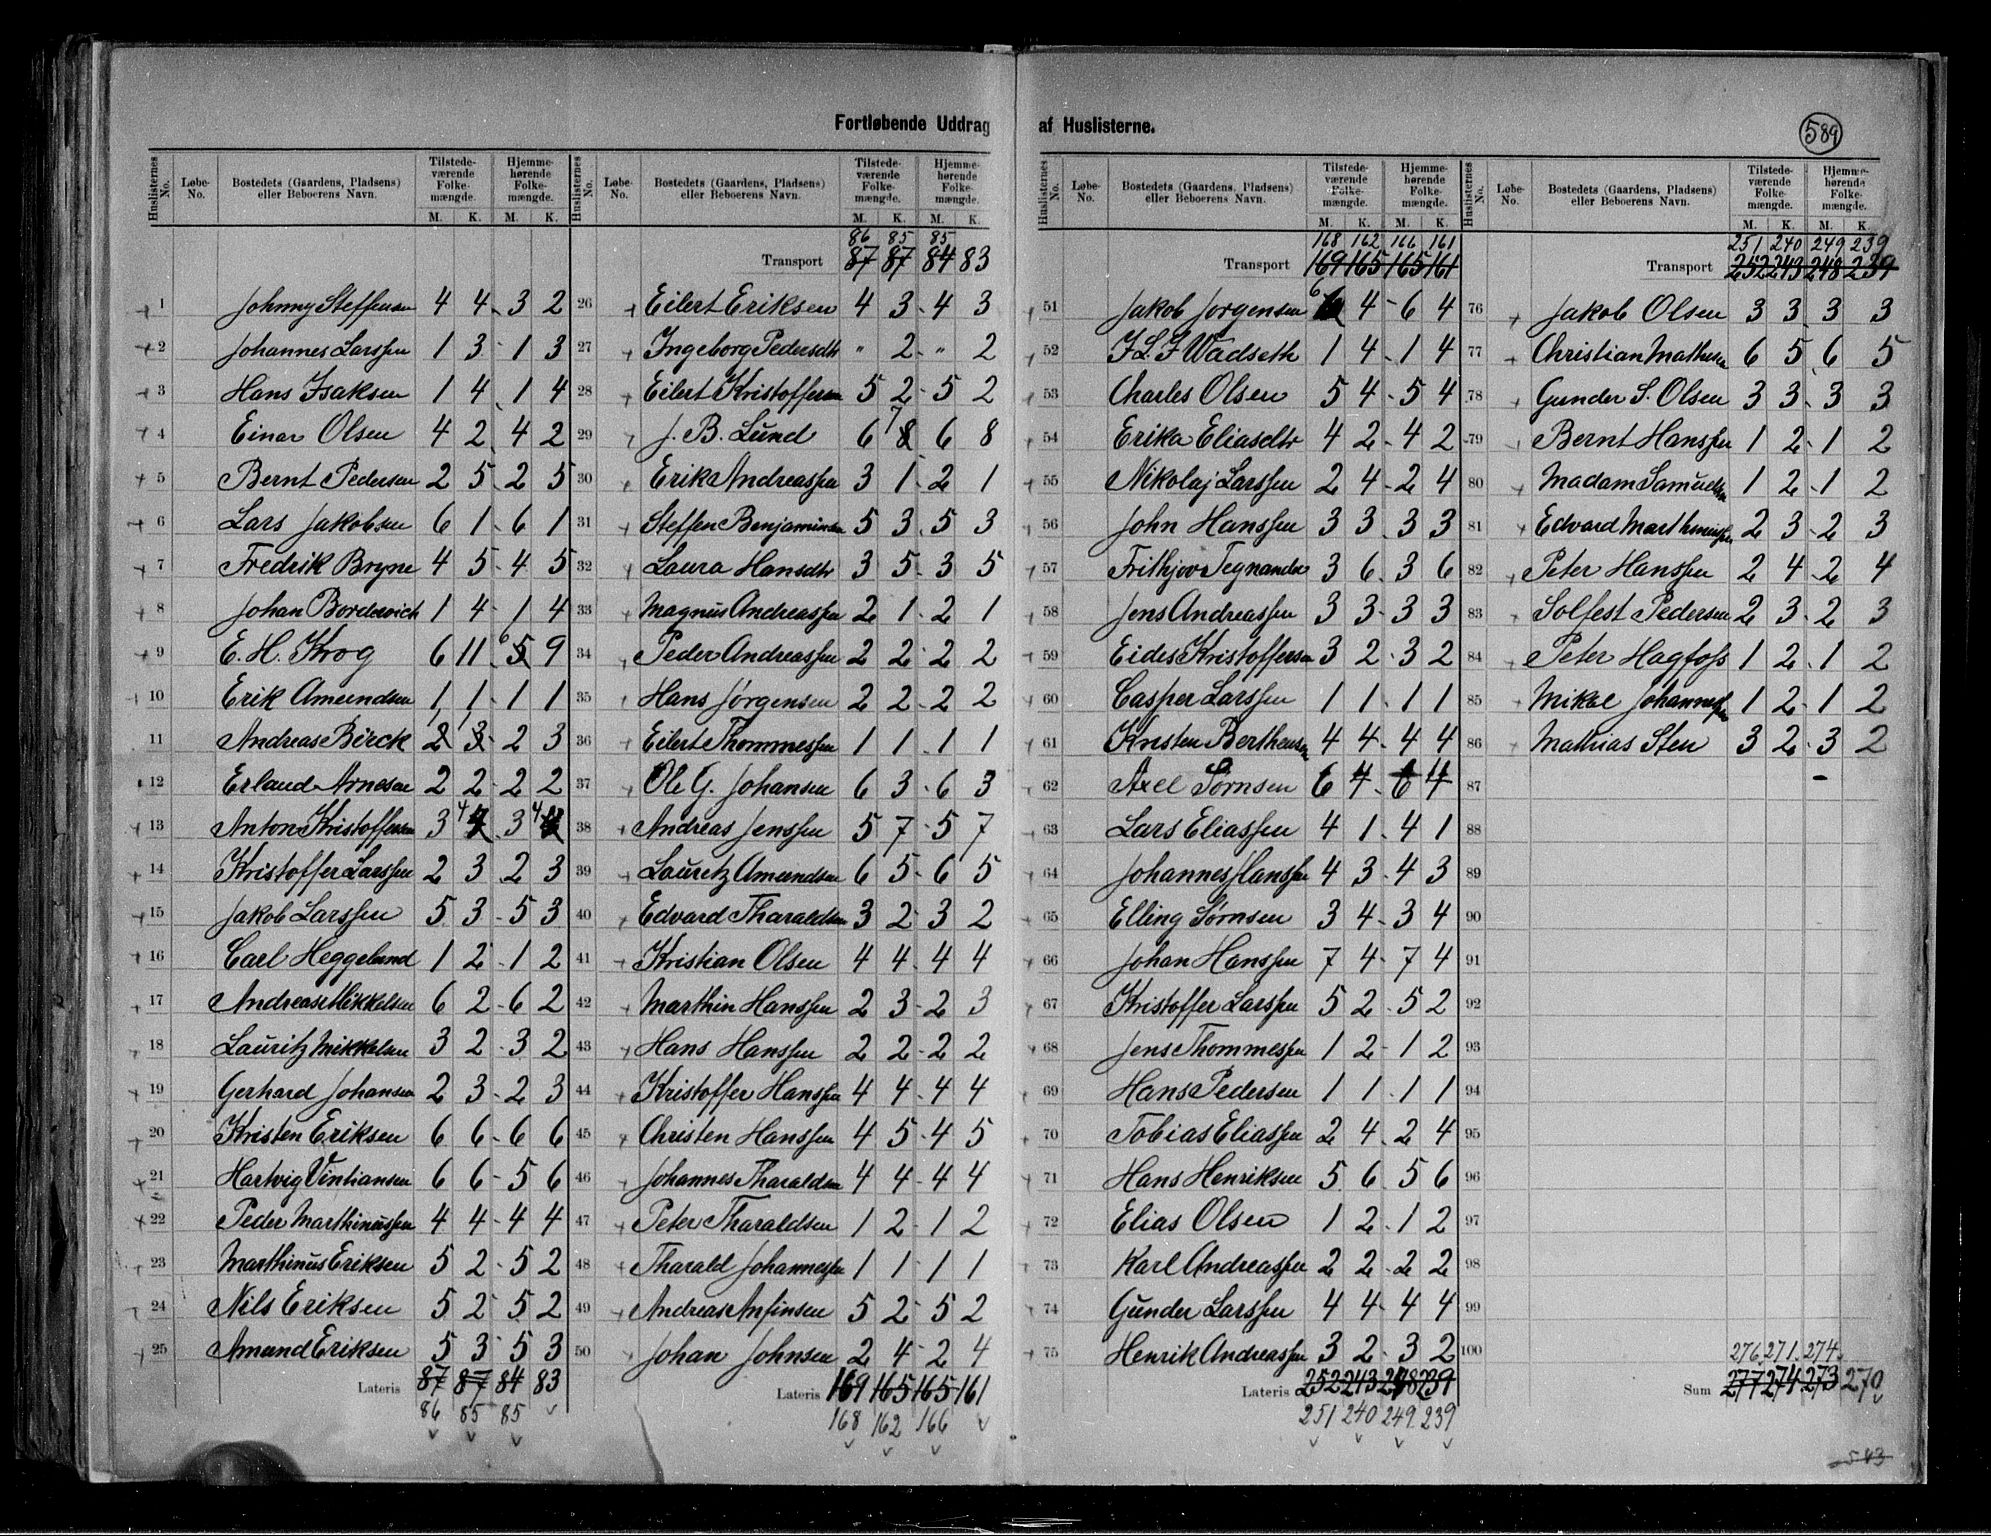 Fortløbende Uddrag af Huslisterne.
589
Huslisternes No. Løbe-No. Bostedets (Gaardens, Pladsens) eller Beboerens Navn. Tilstedeværende Folkemængde. M. K. Hjemmehørende Folkemængde. M. K.
1 Johnny Steffensen 4 4 - 3 2
2 Johannes Larssen 1 3 - 1 3
3 Hans Isaksen 1 4 1 4
4 Einar Olsen 4 2 4 2
5 Bernt Pedersen 2 5 - 2 5
6 Lars Jakobsen 6 1 - 6 1
7 Fredrik Bryne 4 5 - 4 5
8 Johan Borderwich 1 4 - 1 4
9 E. H. Krog 6 11 6 5 9
10 Erik Amundsen 1 1 - 1 1
11 Andreas Birck 1 1 2 3 - 2 3
12 Erland Arnesen 2 2 - 2 2
13 Anton Kristoffersen 3 4 - 3 4
14 Kristoffer Larssen 2 3 2 3
15 Jakob Larssen 5 3 - 5 3
16 Carl Heggelund 1 2 - 1 2
17 Andreas Mikkelsen 6 2 - 6 2
18 Lauritz Mikkelsen 3 2 - 3 2
19 Gerhard Johansen 2 3 - 2 3
20 Kristen Eriksen 6 6 - 6 6
21 Hartvig Vintiansen 6 6 - 5 6
22 Peder Marthinussen 4 4 - 4 4
23 Marthinus Eriksen 5 2 - 5 2
24 Nils Eriksen 5 2 5 2
25 Amund Eriksen 5 3 5 3
Lateris 87 87 84 83
86 85 85
Huslisternes No. Løbe-No. Bostedets (Gaardens, Pladsens) eller Beboerens Navn. Tilstedeværende Folkemængde. M. K. Hjemmehørende Folkemængde. M. K.
86 85 85
Transport 87 87 84 83
26 Eilert Eriksen 4 3 - 4 3
27 Ingeborg Pedersdtr " 2 - " 2
28 Eilert Kristoffersen 5 2 - 5 2
29 J. B. Lund 6 7 8 6 8
30 Erik Andreassen 3 1 - 2 1
31 Steffen Benjaminsen 5 3 - 5 3
32 Laura Hansdtr 3 5 - 3 5
33 Magnus Andreassen 2 1 - 2 1
34 Peder Andreassen 2 2 - 2 2
35 Hans Jørgensen 2 2 - 2 2
36 Eilert Thommessen 1 1 - 1 1
37 Ole G. Johansen 6 3 - 6 3
38 Andreas Jenssen 5 7 - 5 7
39 Lauritz Amundsen 6 5 - 6 5
40 Edvard Tharaldsen 3 2 - 3 2
41 Kristian Olsen 4 4 - 4 4
42 Marthin Hanssen 2 3 - 2 3
43 Hans Hanssen 2 2 - 2 2
44 Kristoffer Hanssen 4 4 - 4 4
45 Christen Hanssen 4 5 - 4 5
46 Johannes Tharaldsen 4 4 - 4 4
47 Peter Tharaldsen 1 2 - 1 2
48 Tharald Johannessen 1 1 - 1 1
49 Andreas Anfinsen 5 2 - 5 2
50 Johan Johnsen 2 4 - 2 4
Lateris 169 165 165 161
168 162 166
Huslisternes No. Løbe-No. Bostedets (Gaardens, Pladsens) eller Beboerens Navn. Tilstedeværende Folkemængde. M. K. Hjemmehørende Folkemængde. M. K.
168 162 166 161
Transport 169 165 165 161
51 Jakob Jørgensen 6 4 - 6 4
52 F. L. F Wadseth 1 4 - 1 4
53 Charles Olsen 5 4 - 5 4
54 Erika Eliasdtr 4 2 - 4 2
55 Nikolaj Larssen 2 4 - 2 4
56 John Hanssen 3 3 - 3 3
57 Frithjov Tegnander 3 6 - 3 6
58 Jens Andreassen 3 3 - 3 3
59 Eides Kristoffersen 3 2 - 3 2
60 Casper Larssen 1 1 - 1 1
61 Kristen Berthensen 4 4 - 4 4
62 Axel Sørnsen 6 4 - 6 4
63 Lars Eliassen 4 1 - 4 1
64 Johannes Hanssen 4 3 - 4 3
65 Elling Sørnsen 3 4 - 3 4
66 Johan Hanssen 7 4 - 7 4
67 Kristoffer Larssen 5 2 - 5 2
68 Jens Thommessen 1 2 - 1 2
69 Hans Pedersen 1 1 1 1
70 Tobias Eliassen 2 4 - 2 4
71 Hans Henriksen 5 6 5 6
72 Elias Olsen 1 2 - 1 2
73 Karl Andreassen 2 2 - 2 2
74 Gunder Larssen 4 4 - 4 4
75 Henrik Andreassen 3 2 - 3 2
Lateris 252 243 248 239
251 240 249 239
Huslisternes No. Løbe-No. Bostedets (Gaardens, Pladsens) eller Beboerens Navn. Tilstedeværende Folkemængde. M. K. Hjemmehørende Folkemængde. M. K.
251 240 249 239
Transport 252 243 248 239
76 Jakob Olsen 3 3 3 3
77 Christian Mathesen 6 5 - 6 5
78 Gunder S. Olsen 3 3 - 3 3
79 Bernt Hanssen 1 2 - 1 2
80 Madam Samuelsen 1 2 - 1 2
81 Edvard Marthinussen 2 3 - 2 3
82 Peter Hanssen 2 4 - 2 4
83 Solfest Pedersen 2 3 - 2 3
84 Peter Hagfoss 1 2 - 1 2
85 Mikal Johannessen 1 2 - 1 2
86 Mathias Sten 3 2 - 3 2
87 -
88
89
90
91
92
93
94
95
96
97
98
99
100
276 271 274
Sum 277 274 273 270
543